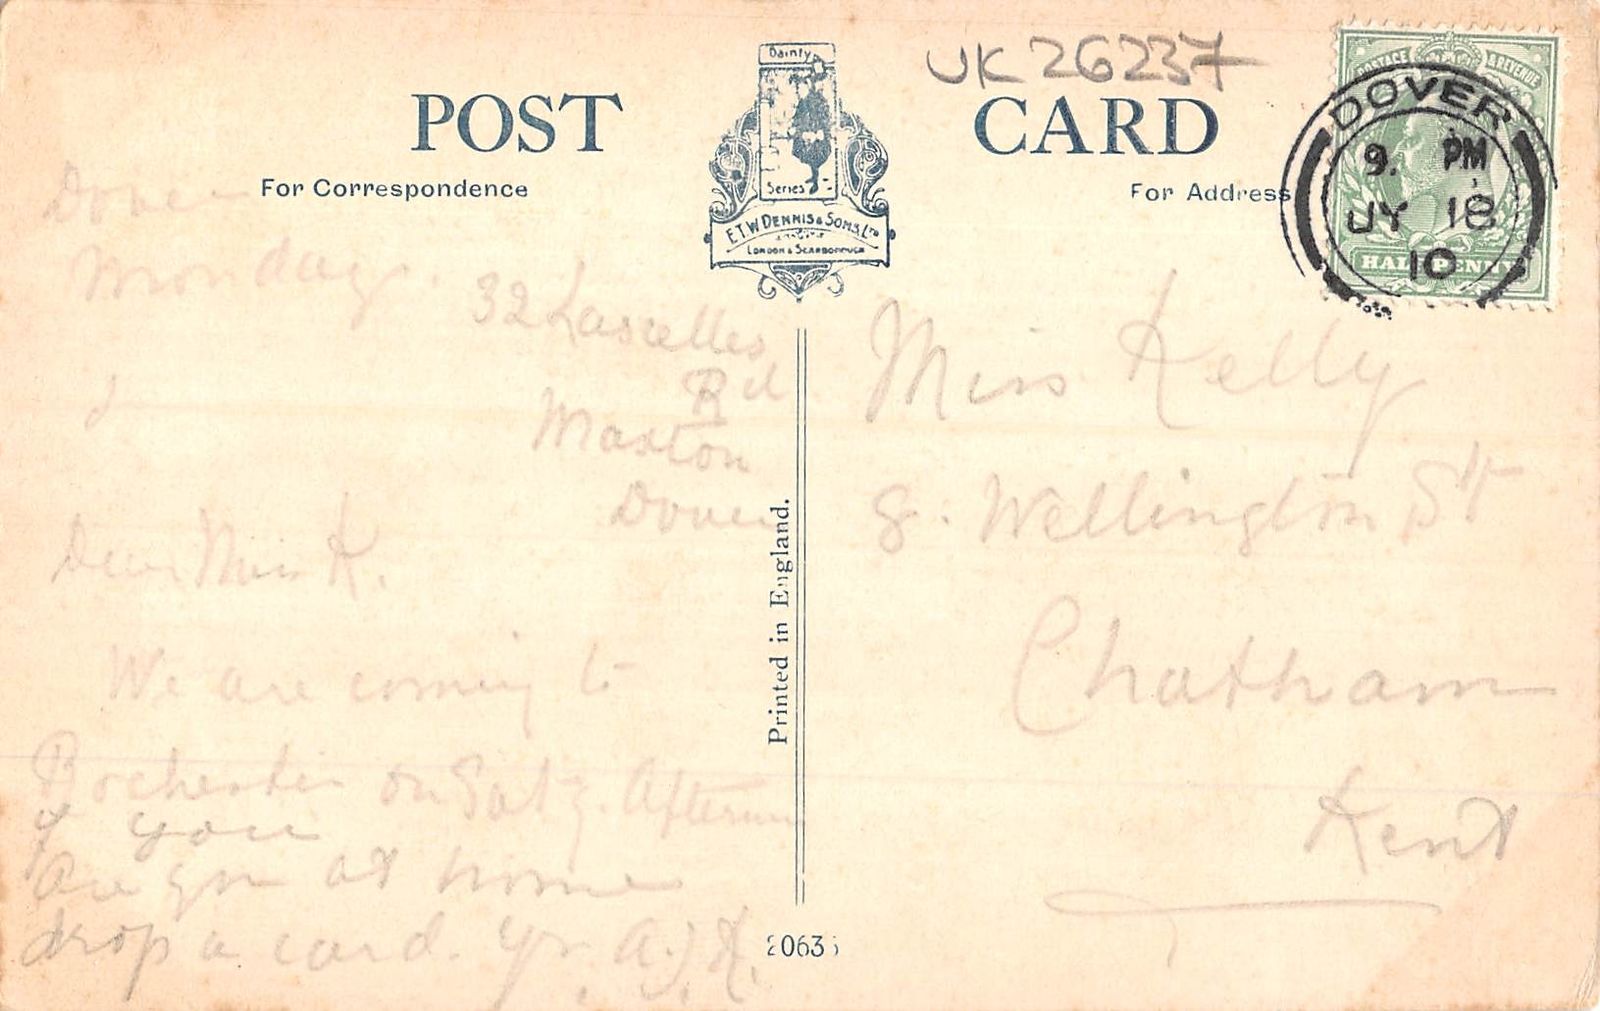 UK 26237
POST CARD
For Correspondence
For Address
Dainty
Series
E.T.W DENNIS & SONS, LTD
LONDON & SCARBOROUGH
POSTAGE & REVENUE
HALFPENNY
DOVER
9. PM
JY 18
10
Dover
Monday.
32 Lascelles
Rd
Maxton
Dover
Dear Miss K.
We are coming to
Rochester on Saty. Afternn
If you
Are you at home
drop a card. Yr. A.J.K.
Miss Kelly
8. Wellington St
Chatham
Kent
Printed in England.
2063